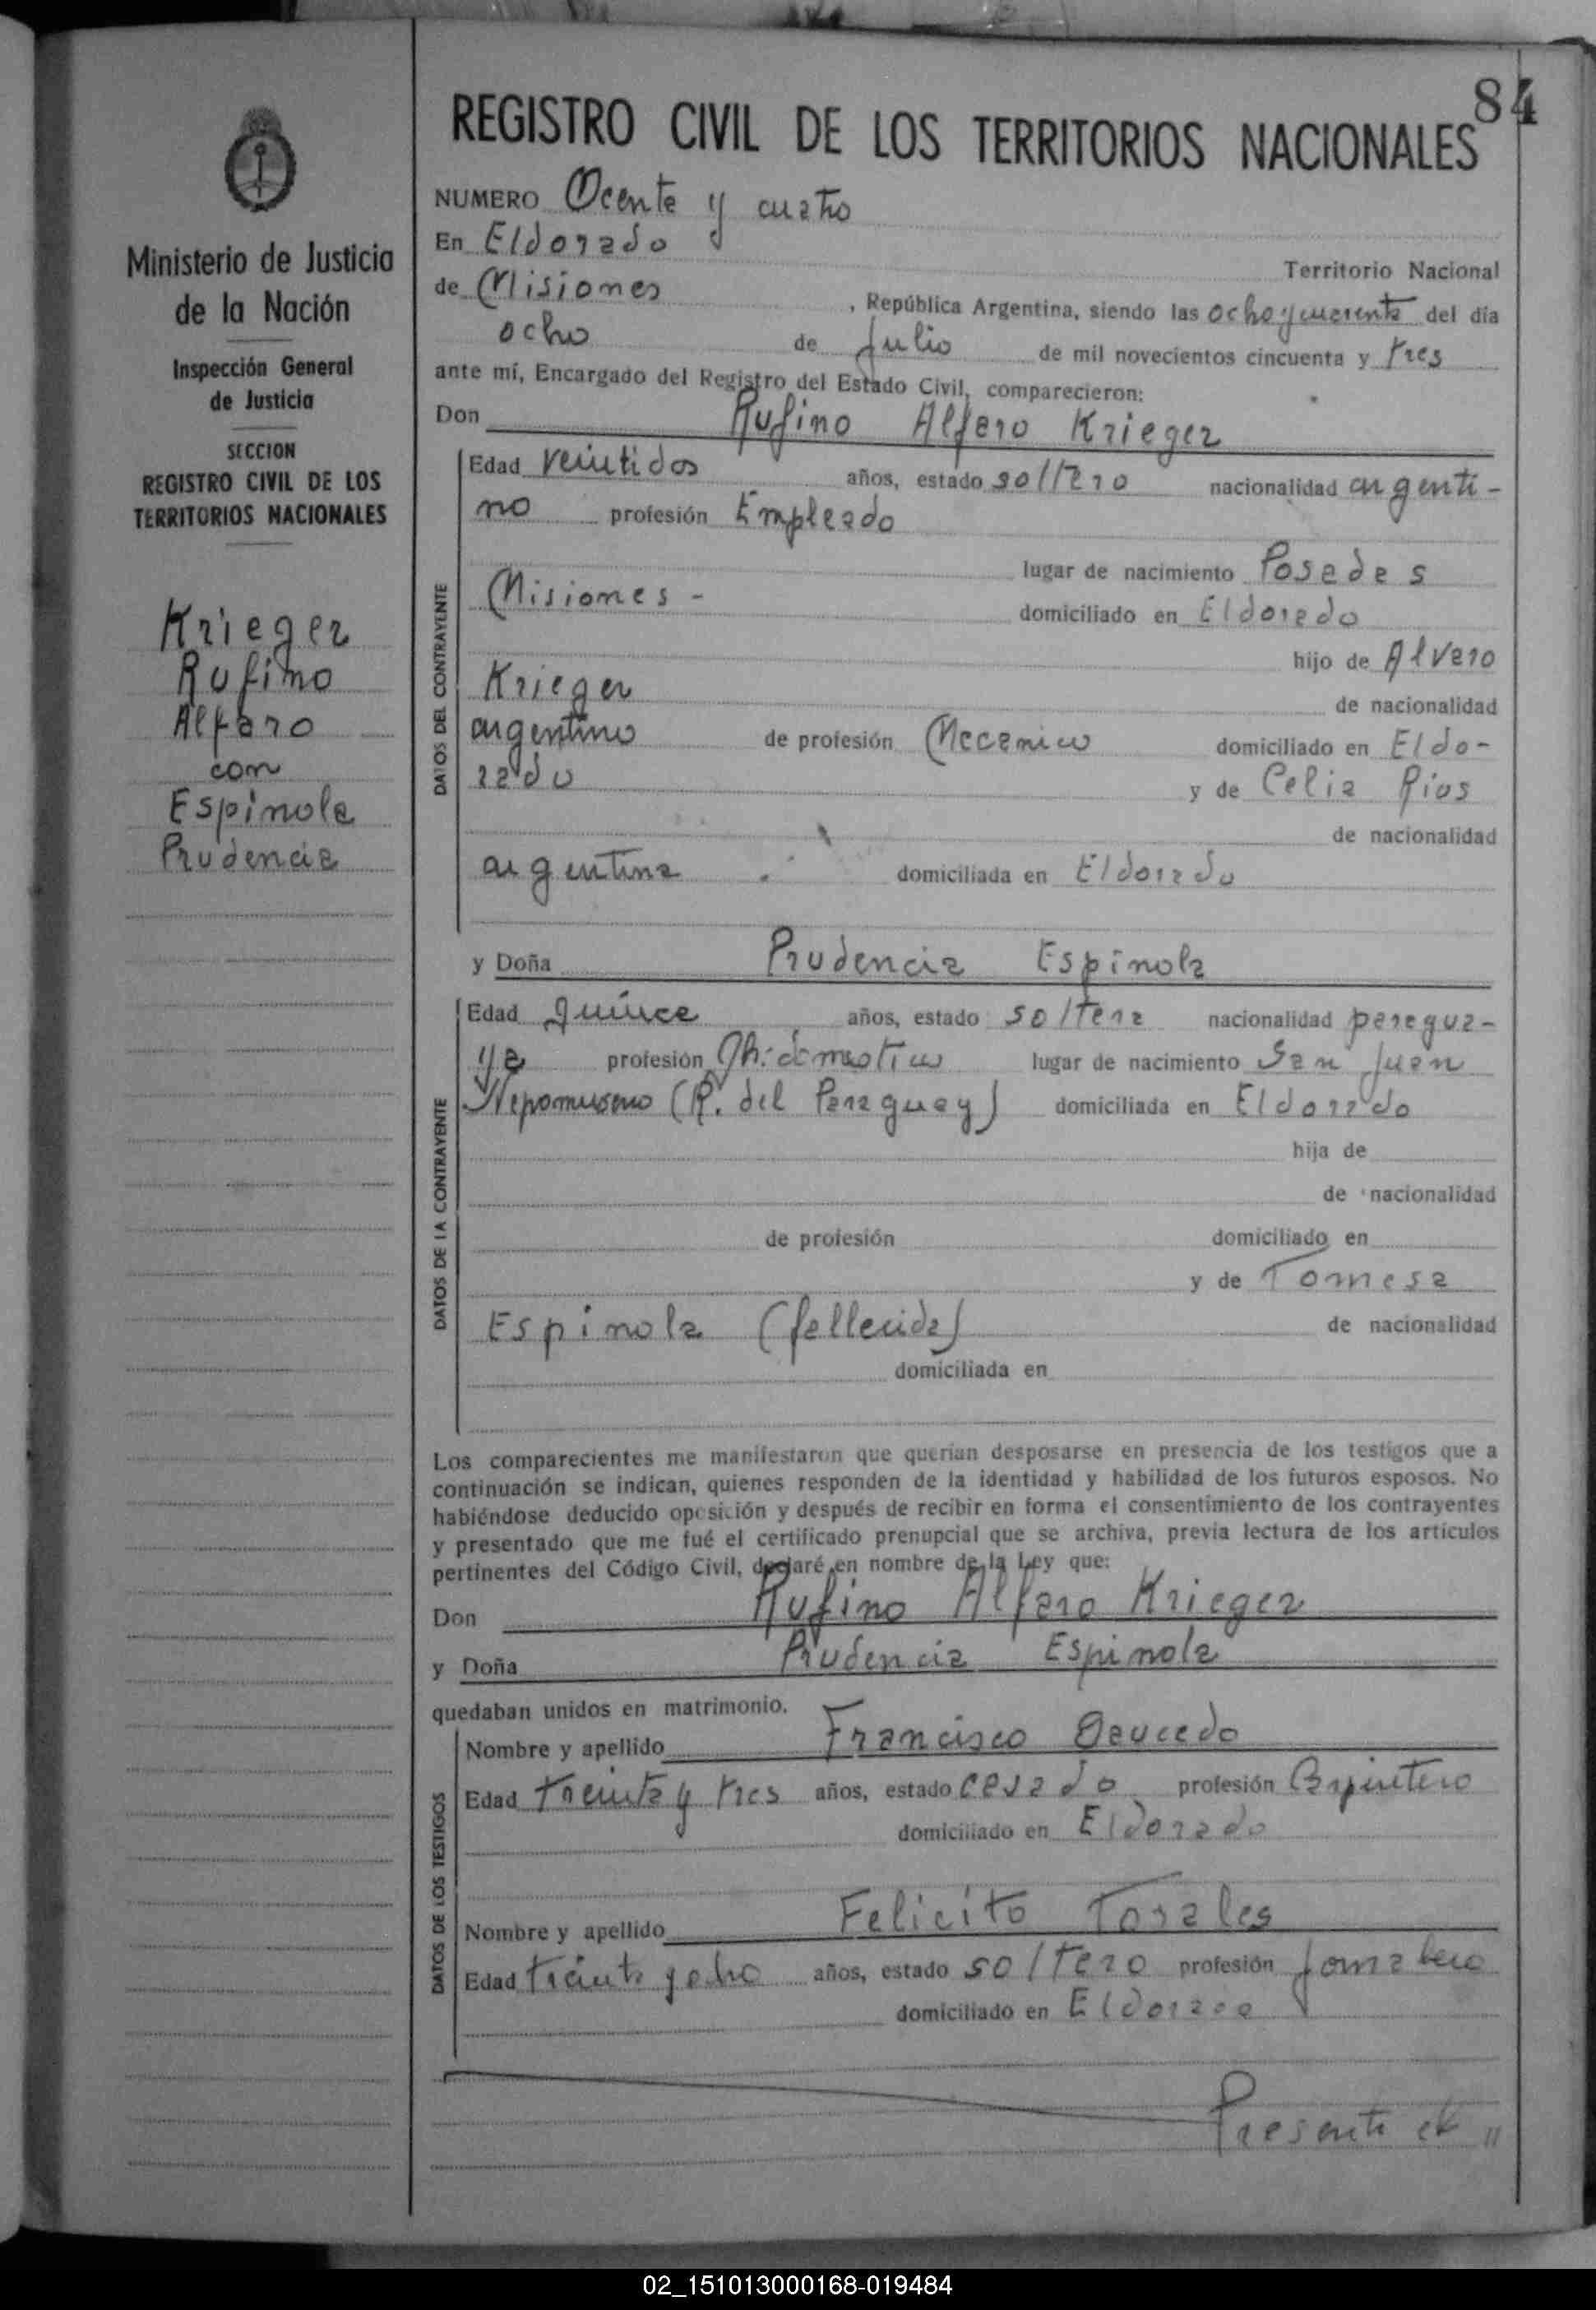 84
REGISTRO CIVIL DE LOS TERRITORIOS NACIONALES
Ministerio de Justicia
de la Nación
Inspección General
de Justicia
SECCION
REGISTRO CIVIL DE LOS
TERRITORIOS NACIONALES
Krieger
Rufino
Alfaro
con
Espinola
Prudencia
NUMERO Ocenta y cuatro
En Eldorado
Territorio Nacional
de Misiones , República Argentina, siendo las ocho y cuarenta del día
ocho de Julio de mil novecientos cincuenta y tres
ante mí, Encargado del Registro del Estado Civil, comparecieron:
Don Rufino Alfaro Krieger
DATOS DEL CONTRAYENTE
Edad veintidos años, estado soltero nacionalidad argenti-
no profesión Empleado
lugar de nacimiento Posadas
Misiones - domiciliado en Eldorado
hijo de Alvaro
Krieger de nacionalidad
argentino de profesión Mecanico domiciliado en Eldo-
rado y de Celia Rios
de nacionalidad
argentina domiciliada en Eldorado
y Doña Prudencia Espinola
DATOS DE LA CONTRAYENTE
Edad quince años, estado soltera nacionalidad paragua-
ya profesión Qh. domestico lugar de nacimiento San Juan
Nepomuseno (R. del Paraguay) domiciliada en Eldorado
hija de
de nacionalidad
de profesión domiciliado en
y de Tomasa
Espinola (fallecida) de nacionalidad
domiciliada en
Los comparecientes me manifestaron que querían desposarse en presencia de los testigos que a
continuación se indican, quienes responden de la identidad y habilidad de los futuros esposos. No
habiéndose deducido oposición y después de recibir en forma el consentimiento de los contrayentes
y presentado que me fué el certificado prenupcial que se archiva, previa lectura de los artículos
pertinentes del Código Civil, declaré en nombre de la Ley que:
Don Rufino Alfaro Krieger
y Doña Prudencia Espinola
quedaban unidos en matrimonio.
DATOS DE LOS TESTIGOS
Nombre y apellido Francisco
Edad treinta y tres años, estado casado profesión Carpintero
domiciliado en Eldorado
Nombre y apellido Felicito Torales
Edad treinta y ocho años, estado soltero profesión Jornalero
domiciliado en Eldorado
Presente el "
02_151013000168-019484